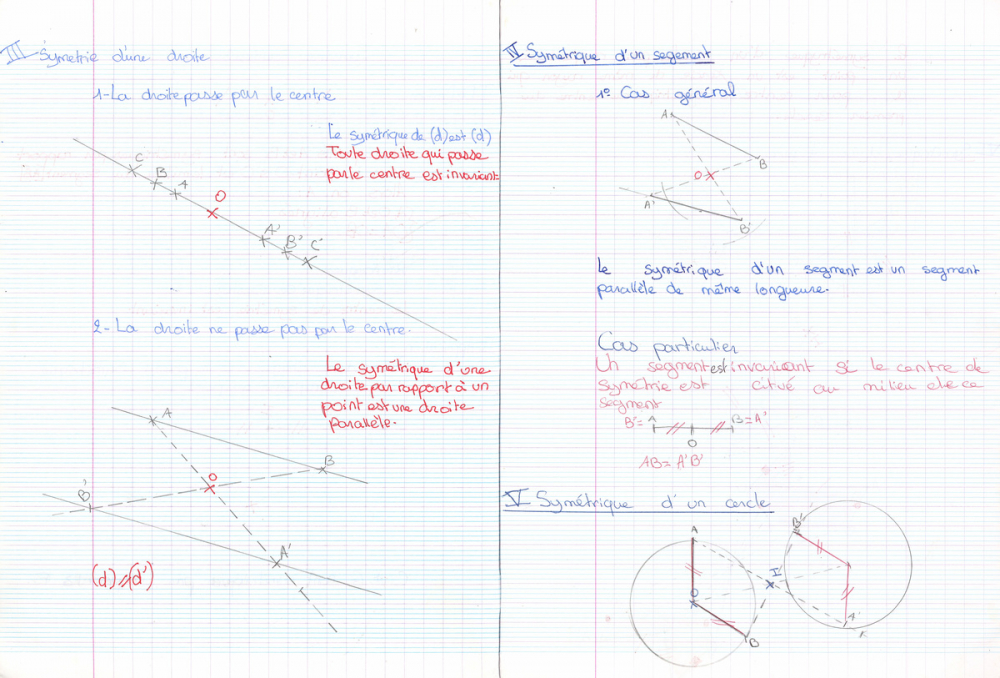 III Symetrie d'une droite
1-La droite passe par le centre
Le symétrique de (d) est (d)
Toute droite qui passe
par le centre est invariant
C
B
A
O
A'
B'
C'
2-La droite ne passe pas par le centre.
Le symétrique d'une
droite par rapport à un
point est une droite
parallèle.
A
B
O
B'
A'
(d)//(d')
IV Symétrique d'un segement
1° Cas général
A
B
O
A'
B'
Le symétrique d'un segment est un segment
parallèle de même longueure.
Cas particulier
Un segment est invariant si le centre de
symétrie est citué au milieu de ce
segment
B'=A B=A'
O
AB=A'B'
V Symétrique d'un cercle
A
B'
I
O
A'
B